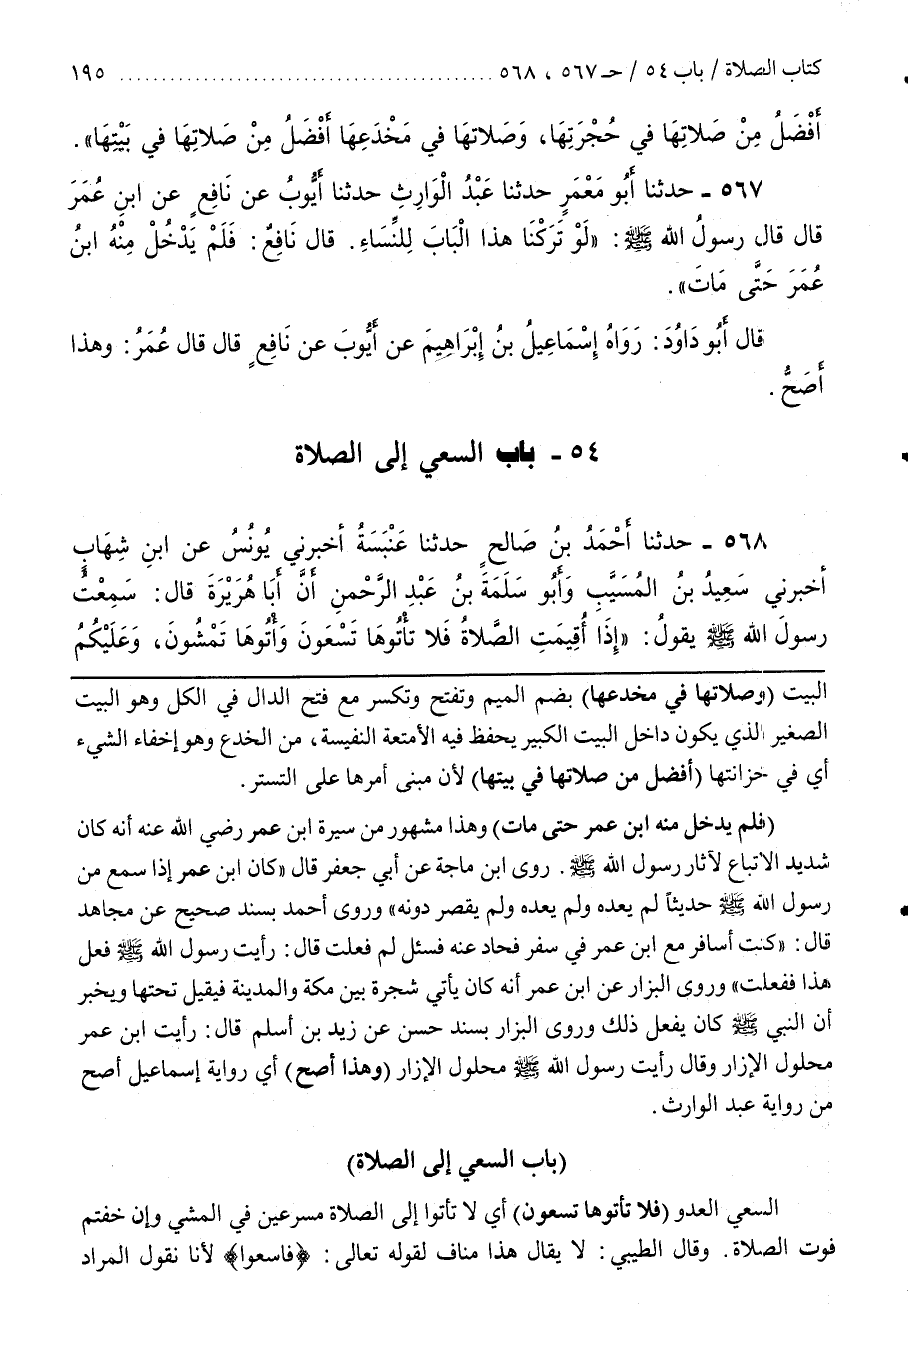 كتاب الصلاة / باب ٥٤ / حـ ٥٦٧ ، ٥٦٨ ............................................. ١٩٥
أَفْضَلُ مِنْ صَلاتِهَا في حُجْرَتِهَا، وَصَلاتهَا في مَخْدَعِهَا أَفْضَلُ مِنْ صَلاتِهَا في بَيْتِهَا».
٥٦٧ ـ حدثنا أَبُو مَعْمَرٍ حدثنا عَبْدُ الْوَارِثِ حدثنا أَيُّوبُ عن نَافِعٍ عن ابنِ عُمَرَ
قال قال رسولُ الله ﷺ: «لَوْ تَرَكْنَا هذا الْبَابَ لِلنِّسَاءِ. قال نَافِعٌ: فَلَمْ يَدْخُلْ مِنْهُ ابنُ
عُمَرَ حَتَّى مَاتَ».
قال أَبُو دَاوُدَ: رَوَاهُ إِسْمَاعِيلُ بنُ إِبْرَاهِيمَ عن أَيُّوبَ عن نَافِعٍ قال قال عُمَرُ: وهذا
أَصَحُّ.
٥٤ ـ باب السعي إلى الصلاة
٥٦٨ ـ حدثنا أَحْمَدُ بنُ صَالحٍ حدثنا عَنْبَسَةُ أخبرني يُونُسُ عن ابنِ شِهَابٍ
أخبرني سَعِيدُ بنُ المُسَيَّبِ وَأَبُو سَلَمَةَ بنُ عَبْدِ الرَّحْمنِ أَنَّ أَبَا هُرَيْرَةَ قال: سَمِعْتُ
رسولَ الله ﷺ يقولُ: «إِذَا أُقِيمَتِ الصَّلاةُ فَلا تأْتُوهَا تَسْعَونَ وَأْتُوهَا تَمْشُونَ، وَعَلَيْكُمُ
البيت (وصلاتها في مخدعها) بضم الميم وتفتح وتكسر مع فتح الدال في الكل وهو البيت
الصغير الذي يكون داخل البيت الكبير يحفظ فيه الأمتعة النفيسة، من الخدع وهو إخفاء الشيء
أي في خزانتها (أفضل من صلاتها في بيتها) لأن مبنى أمرها على التستر.
(فلم يدخل منه ابن عمر حتى مات) وهذا مشهور من سيرة ابن عمر رضي الله عنه أنه كان
شديد الاتباع لآثار رسول الله ﷺ. روى ابن ماجة عن أبي جعفر قال «كان ابن عمر إذا سمع من
رسول الله ﷺ حديثاً لم يعده ولم يعده ولم يقصر دونه» وروى أحمد بسند صحيح عن مجاهد
قال: «كنت أسافر مع ابن عمر في سفر فحاد عنه فسئل لم فعلت قال: رأيت رسول الله ﷺ فعل
هذا ففعلت» وروى البزار عن ابن عمر أنه كان يأتي شجرة بين مكة والمدينة فيقيل تحتها ويخبر
أن النبي ﷺ كان يفعل ذلك وروى البزار بسند حسن عن زيد بن أسلم قال: رأيت ابن عمر
محلول الإزار وقال رأيت رسول الله ﷺ محلول الإزار (وهذا أصح) أي رواية إسماعيل أصح
من رواية عبد الوارث.
(باب السعي إلى الصلاة)
السعي العدو (فلا تأتوها تسعون) أي لا تأتوا إلى الصلاة مسرعين في المشي وإن خفتم
فوت الصلاة. وقال الطيبي: لا يقال هذا مناف لقوله تعالى: ﴿فاسعوا﴾ لأنا نقول المراد